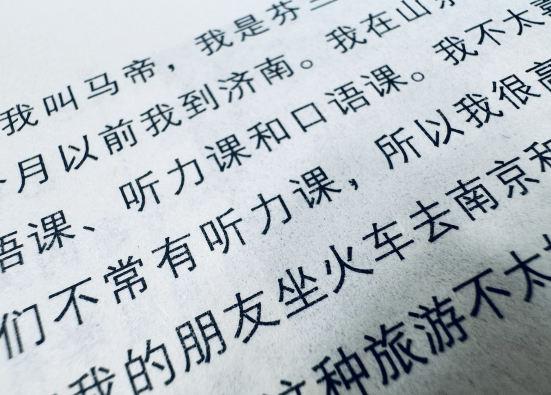 我叫马帝，我是芬兰
月以前我到济南。我在山东
语课、听力课和口语课。我不太喜
们不常有听力课，所以我很高
我的朋友坐火车去南京和
这种旅游不太